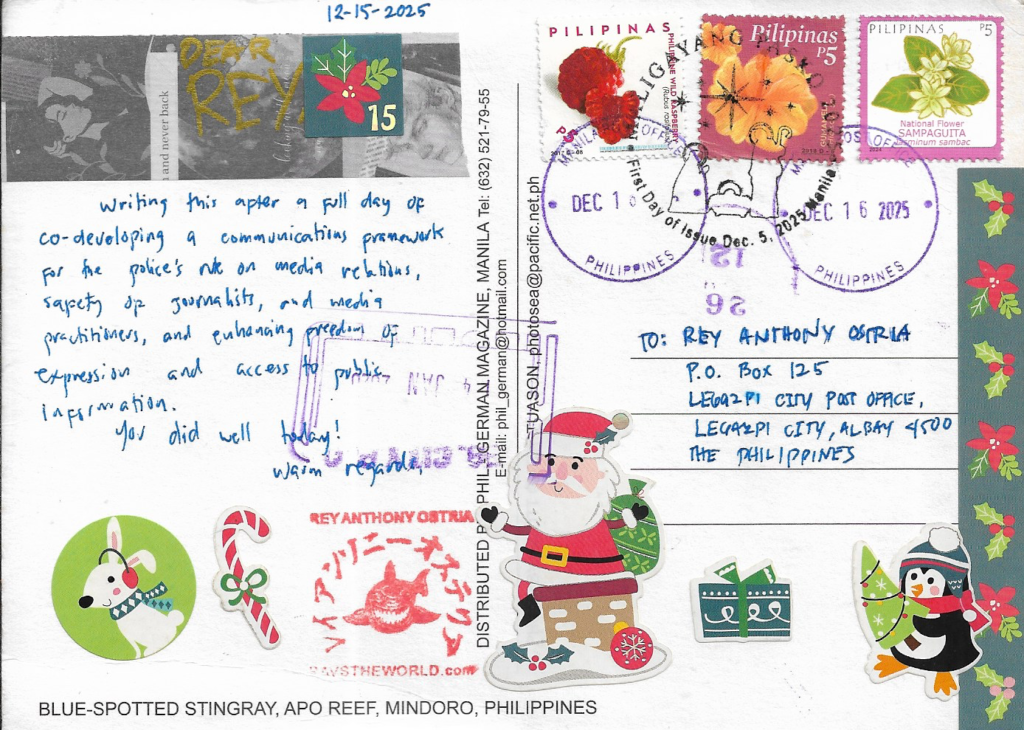 12-15-2025
DEAR
REY
15
and never back
Writing this after a full day of
co-developing a communications framework
for the police's role on media relations,
safety of journalists, and media
practitioners, and enhancing freedom of
expression and access to public
information.
You did well today!
Warm regards,
REY ANTHONY OSTRIA
レイ アンソニー オストリア
RAYSTHEWORLD.com
BLUE-SPOTTED STINGRAY, APO REEF, MINDORO, PHILIPPINES
DISTRIBUTED PHIL. GERMAN MAGAZINE, MANILA Tel: (632) 521-79-55
E-mail: phil_german@hotmail.com
TUASON, photosea@pacific.net.ph
PILIPINAS
PHILIPPINE WILD RASPBERRY
P5
Pilipinas
P5
PILIPINAS
P5
National Flower
SAMPAGUITA
Jasminum sambac
MALIGAYANG PASKO
First Day of Issue Dec. 5, 2025 Manila
DEC 16
PHILIPPINES
DEC 16 2025
PHILIPPINES
12
26
4 JAN
TO: REY ANTHONY OSTRIA
P.O. BOX 125
LEGAZPI CITY POST OFFICE,
LEGAZPI CITY, ALBAY 4500
THE PHILIPPINES